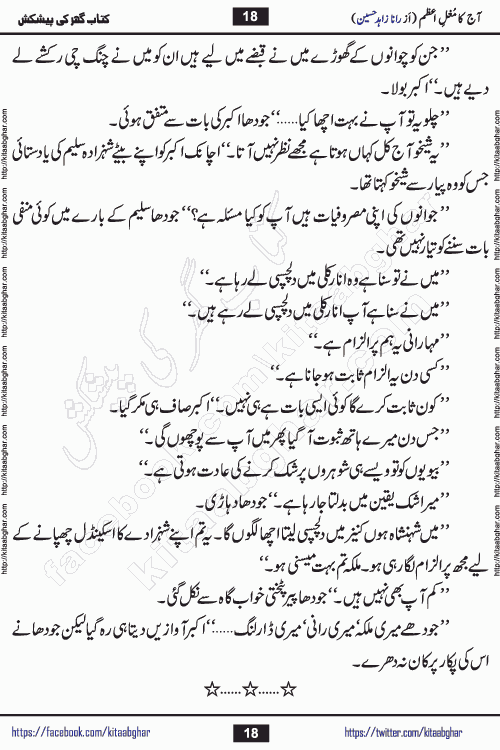 آج کا مُغلِ اعظم (از رانا زاہد حسین)
18
کتاب گھر کی پیشکش
’’جن کو چوانوں کے گھوڑے میں نے قبضے میں لیے ہیں ان کو میں نے چنگ چی رکشے لے
دیے ہیں۔‘‘ اکبر بولا۔
’’چلو یہ تو آپ نے بہت اچھا کیا......‘‘ جودھا اکبر کی بات سے متفق ہوئی۔
’’یہ شیخو آج کل کہاں ہوتا ہے مجھے نظر نہیں آتا۔‘‘ اچانک اکبر کو اپنے بیٹے شہزادہ سلیم کی یاد ستائی
جس کو وہ پیار سے شیخو کہتا تھا۔
’’جوانوں کی اپنی مصروفیات ہیں آپ کو کیا مسئلہ ہے؟‘‘ جودھا سلیم کے بارے میں کوئی منفی
بات سننے کو تیار نہیں تھی۔
’’میں نے تو سنا ہے وہ انارکلی میں دلچسپی لے رہا ہے۔‘‘
’’میں نے سنا ہے آپ انارکلی میں دلچسپی لے رہے ہیں۔‘‘
’’مہارانی یہ ہم پر الزام ہے۔‘‘
’’کسی دن یہ الزام ثابت ہو جانا ہے۔‘‘
’’کون ثابت کرے گا کوئی ایسی بات ہے ہی نہیں۔‘‘ اکبر صاف ہی مکر گیا۔
’’جس دن میرے ہاتھ ثبوت آ گیا پھر میں آپ سے پوچھوں گی۔‘‘
’’بیویوں کو تو ویسے ہی شوہروں پر شک کرنے کی عادت ہوتی ہے۔‘‘
’’میرا شک یقین میں بدلتا جا رہا ہے۔‘‘ جودھا دہاڑی۔
’’میں شہنشاہ ہوں کنیز میں دلچسپی لیتا اچھا لگوں گا۔ یہ تم اپنے شہزادے کا اسکینڈل چھپانے کے
لیے مجھ پر الزام لگا رہی ہو۔ ملکہ تم بہت میسنی ہو۔‘‘
’’کم آپ بھی نہیں ہیں۔‘‘ جودھا پیر پٹختی خواب گاہ سے نکل گئی۔
’’جودھے میری ملکہ‘ میری رانی‘ میری ڈارلنگ......‘‘ اکبر آوازیں دیتا ہی رہ گیا لیکن جودھا نے
اس کی پکار پر کان نہ دھرے۔
☆......☆......☆
https://facebook.com/kitaabghar
18
https://twitter.com/kitaabghar
http://kitaabghar.com
کتاب گھر کی پیشکش
http://kitaabghar.com